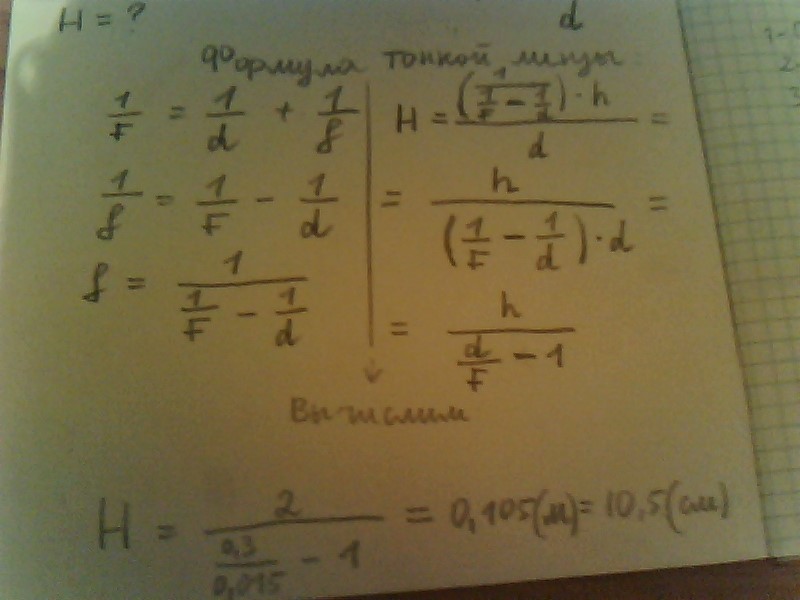 H = ?
d
Формула тонкой линзы
1/F = 1/d + 1/f
1/f = 1/F - 1/d
f = 1/(1/F - 1/d)
H = ((1/(1/F - 1/d)) · h)/d =
= h/((1/F - 1/d) · d) =
= h/(d/F - 1)
Вычислим
H = 2/(0,3/0,015 - 1) = 0,105(м) = 10,5(см)
1-
2-
3